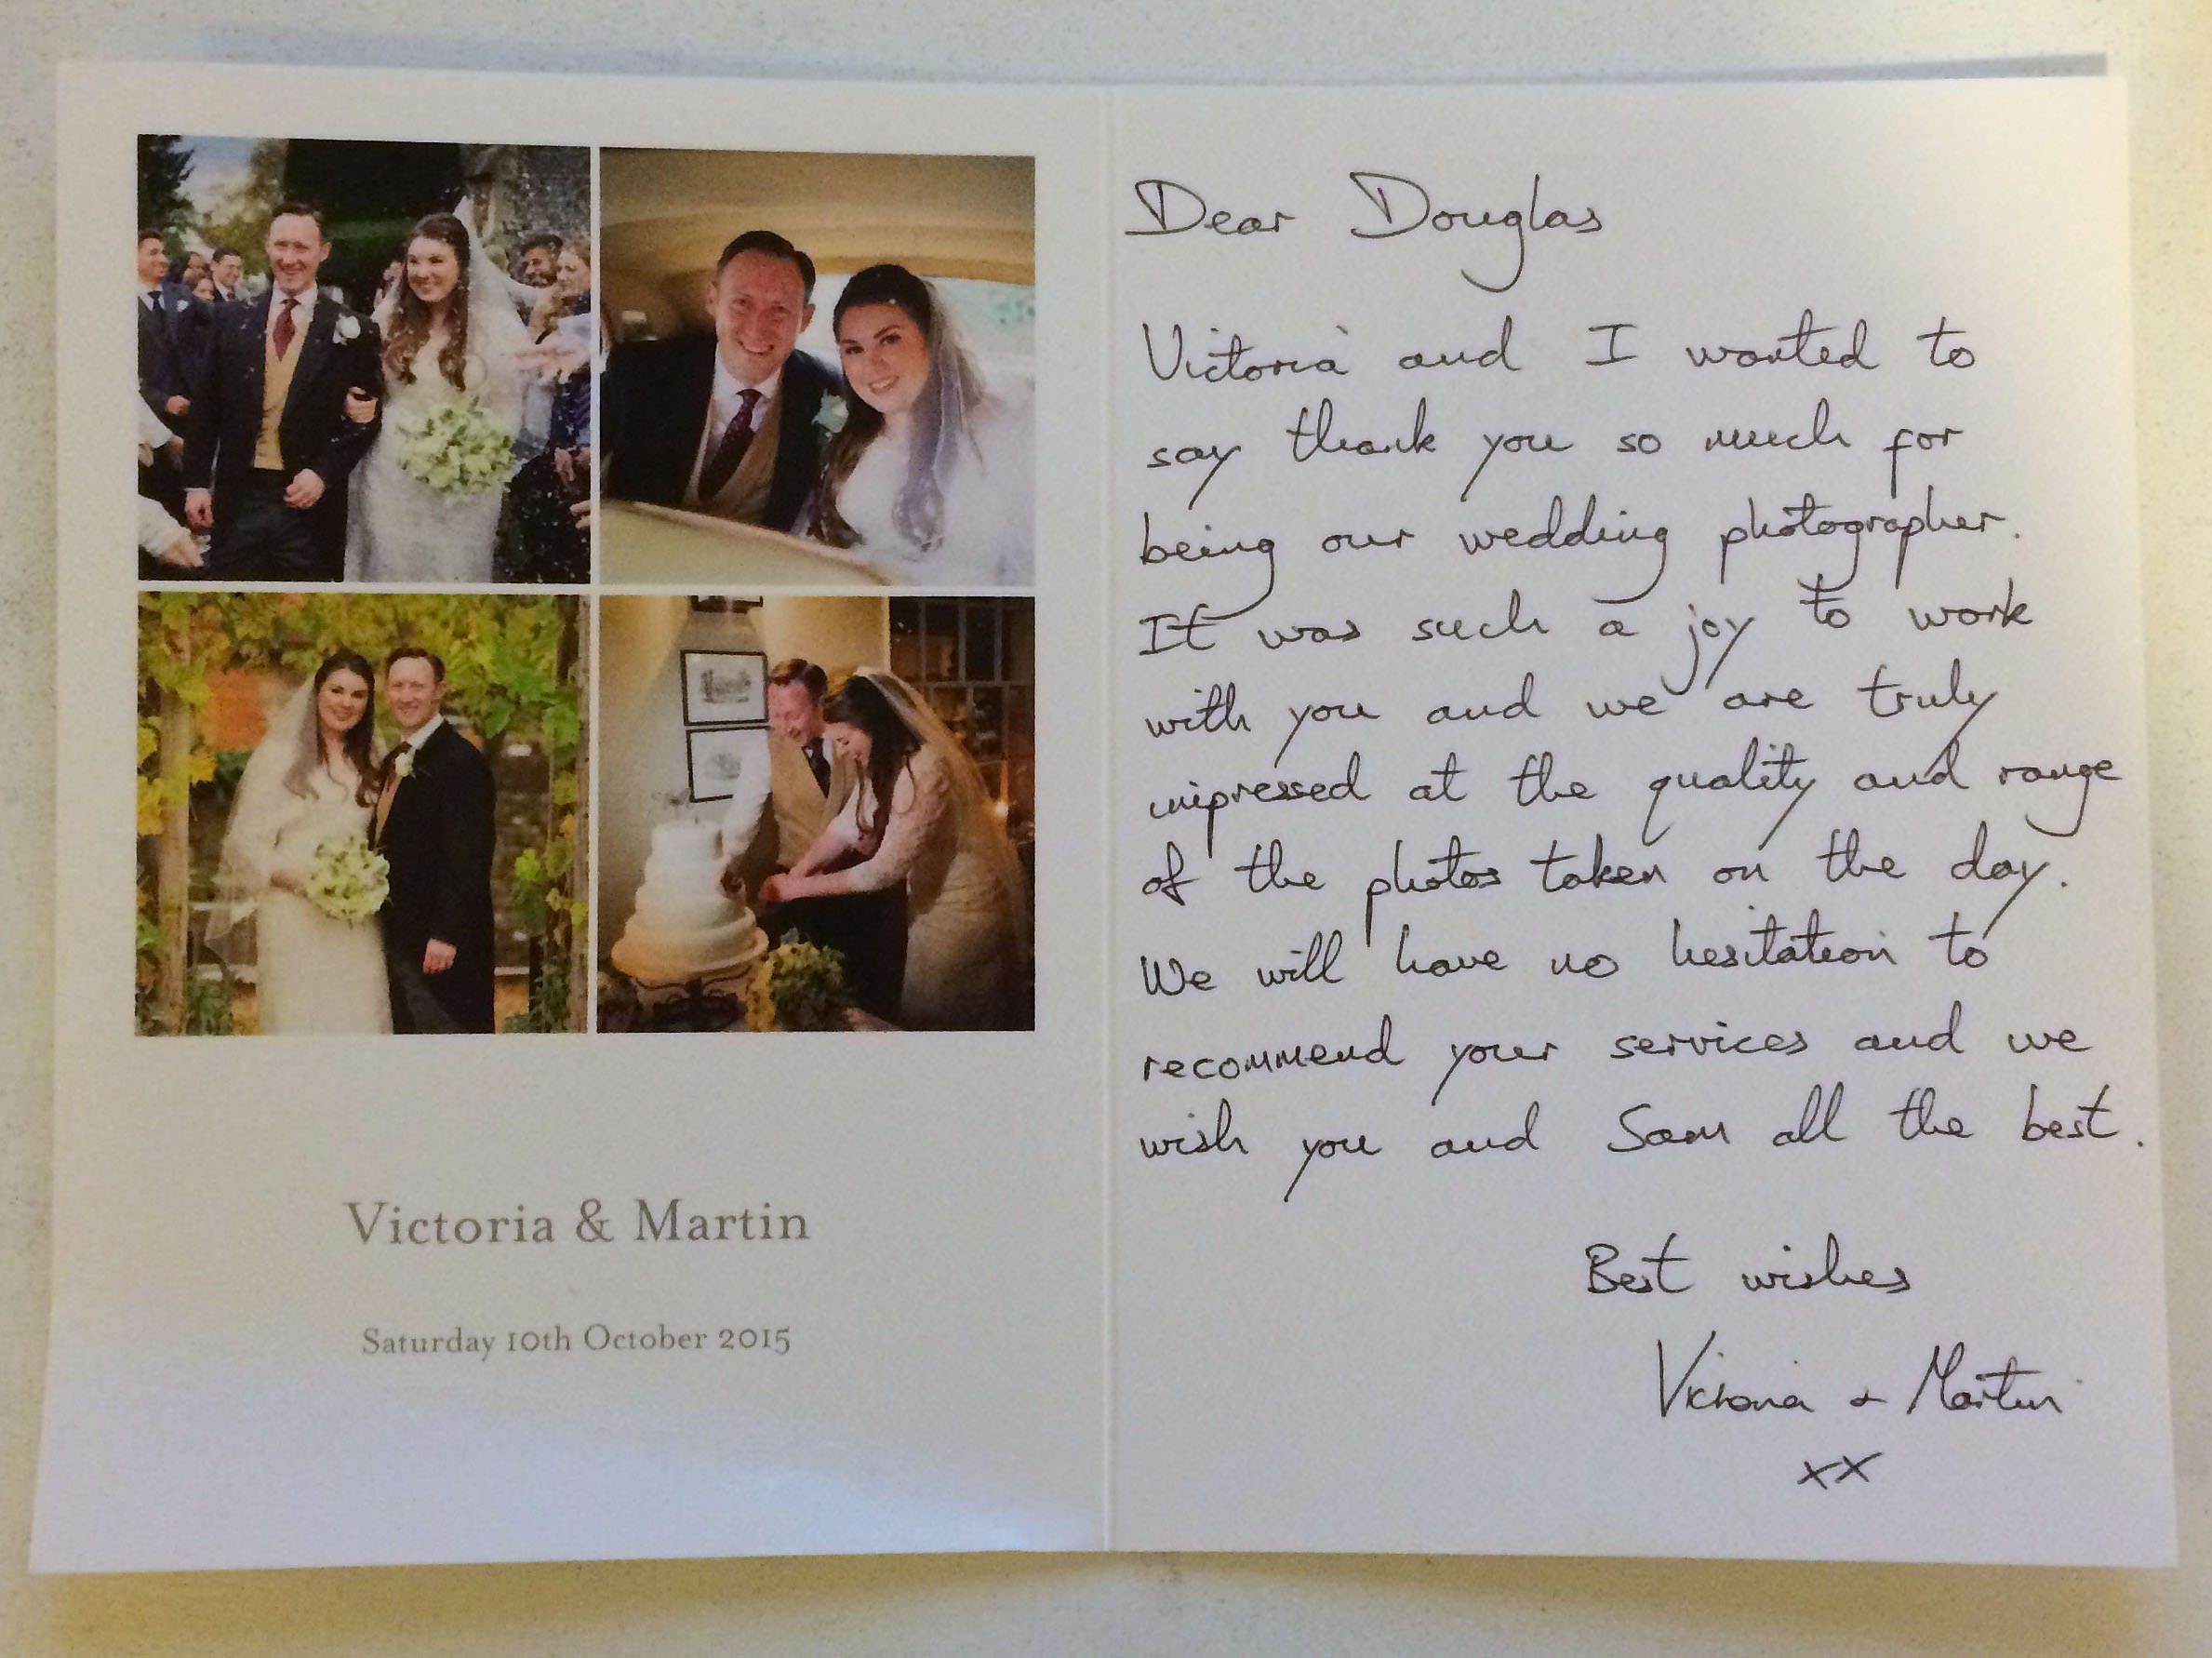 Victoria & Martin
Saturday 10th October 2015
Dear Douglas
Victoria and I wanted to
say thank you so much for
being our wedding photographer.
It was such a joy to work
with you and we are truly
impressed at the quality and range
of the photos taken on the day.
We will have no hesitation to
recommend your services and we
wish you and Sam all the best.
Best wishes
Victoria & Martin
xx